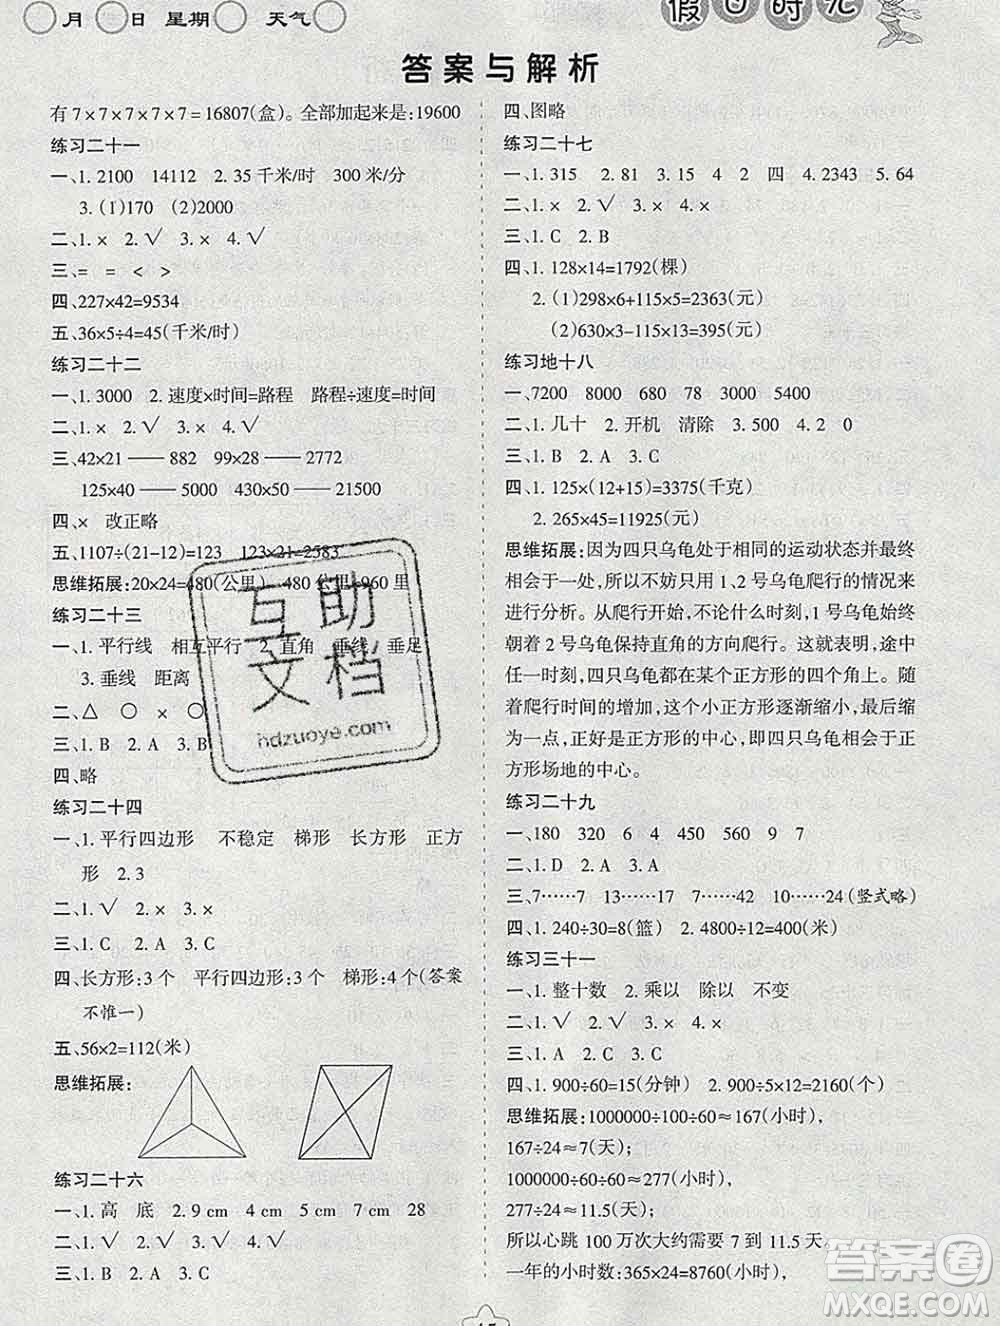 月 日 星期 天气
假日时光
答案与解析
有7×7×7×7×7=16807(盒)。全部加起来是:19600
练习二十一
一、1. 2100 14112 2. 35 千米/时 300 米/分
3. (1)170 (2)2000
二、1. × 2. √ 3. × 4. √
三、= = < >
四、227×42=9534
五、36×5÷4=45(千米/时)
练习二十二
一、1. 3000 2. 速度×时间=路程 路程÷速度=时间
二、1. × 2. √ 3. × 4. √
三、42×21 —— 882 99×28 —— 2772
125×40 —— 5000 430×50 —— 21500
四、× 改正略
五、1107÷(21-12)=123 123×21=2583
思维拓展:20×24=480(公里) 480 公里=960 里
练习二十三
一、1. 平行线 相互平行 2. 直角 垂线 垂足
3. 垂线 距离
二、△ ○ × ○
三、1. B 2. A 3. B
四、略
练习二十四
一、1. 平行四边形 不稳定 梯形 长方形 正方
形 2. 3
二、1. √ 2. × 3. ×
三、1. C 2. A 3. C
四、长方形:3 个 平行四边形:3 个 梯形:4 个(答案
不惟一)
五、56×2=112(米)
思维拓展:
练习二十六
一、1. 高 底 2. 9 cm 4 cm 5 cm 7 cm 28
二、1. √ 2. √ 3. √ 4. √
三、1. C 2. A 3. C
四、图略
练习二十七
一、1. 315 2. 81 3. 15 4 2 四 4. 2343 5. 64
二、1. × 2. √ 3. × 4. ×
三、1. C 2. B
四、1. 128×14=1792(棵)
2. (1)298×6+115×5=2363(元)
(2)630×3-115×13=395(元)
练习地十八
一、7200 8000 680 78 3000 5400
二、1. 几十 2. 开机 清除 3. 500 4. 2 0
三、1. B 2. A 3. C
四、1. 125×(12+15)=3375(千克)
2. 265×45=11925(元)
思维拓展:因为四只乌龟处于相同的运动状态并最终
相会于一处,所以不妨只用 1、2 号乌龟爬行的情况来
进行分析。从爬行开始,不论什么时刻,1 号乌龟始终
朝着 2 号乌龟保持直角的方向爬行。这表明,途中
任一时刻,四只乌龟都在某个正方形的四个角上。随
着爬行时间的增加,这个小正方形逐渐缩小,最后缩
为一点,正好是正方形的中心,即四只乌龟会合于正
方形场地的中心。
练习二十九
一、180 320 6 4 450 560 9 7
二、1. D 2. A 3. A
三、7……7 13……17 20……42 10……24(竖式略)
四、1. 240÷30=8(篮) 2. 4800÷12=400(米)
练习三十一
一、1. 整十数 2. 乘以 除以 不变
二、1. √ 2. √ 3. × 4. ×
三、1. C 2. A 3. C
四、1. 900÷60=15(分钟) 2. 900÷5×12=2160(个)
思维拓展:1000000÷100÷60≈167(小时),
167÷24≈7(天);
1000000÷60÷60≈277(小时),
277÷24≈11.5(天);
所以心跳 100 万次大约需要 7 到 11.5 天。
一年的小时数:365×24=8760(小时)
互助文档
hdzuoye.com
答案圈
MXQE.COM